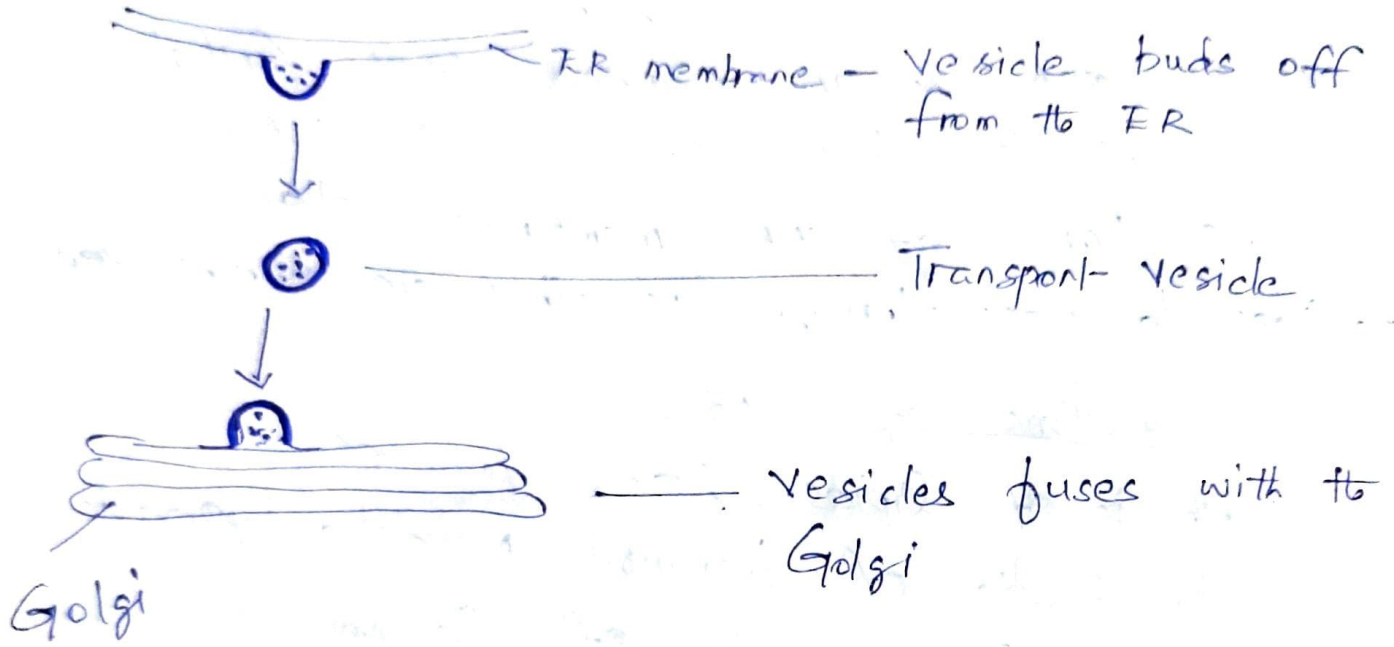 ER membrane - Vesicle buds off
from the ER
Transport vesicle
Vesicles fuses with the
Golgi
Golgi